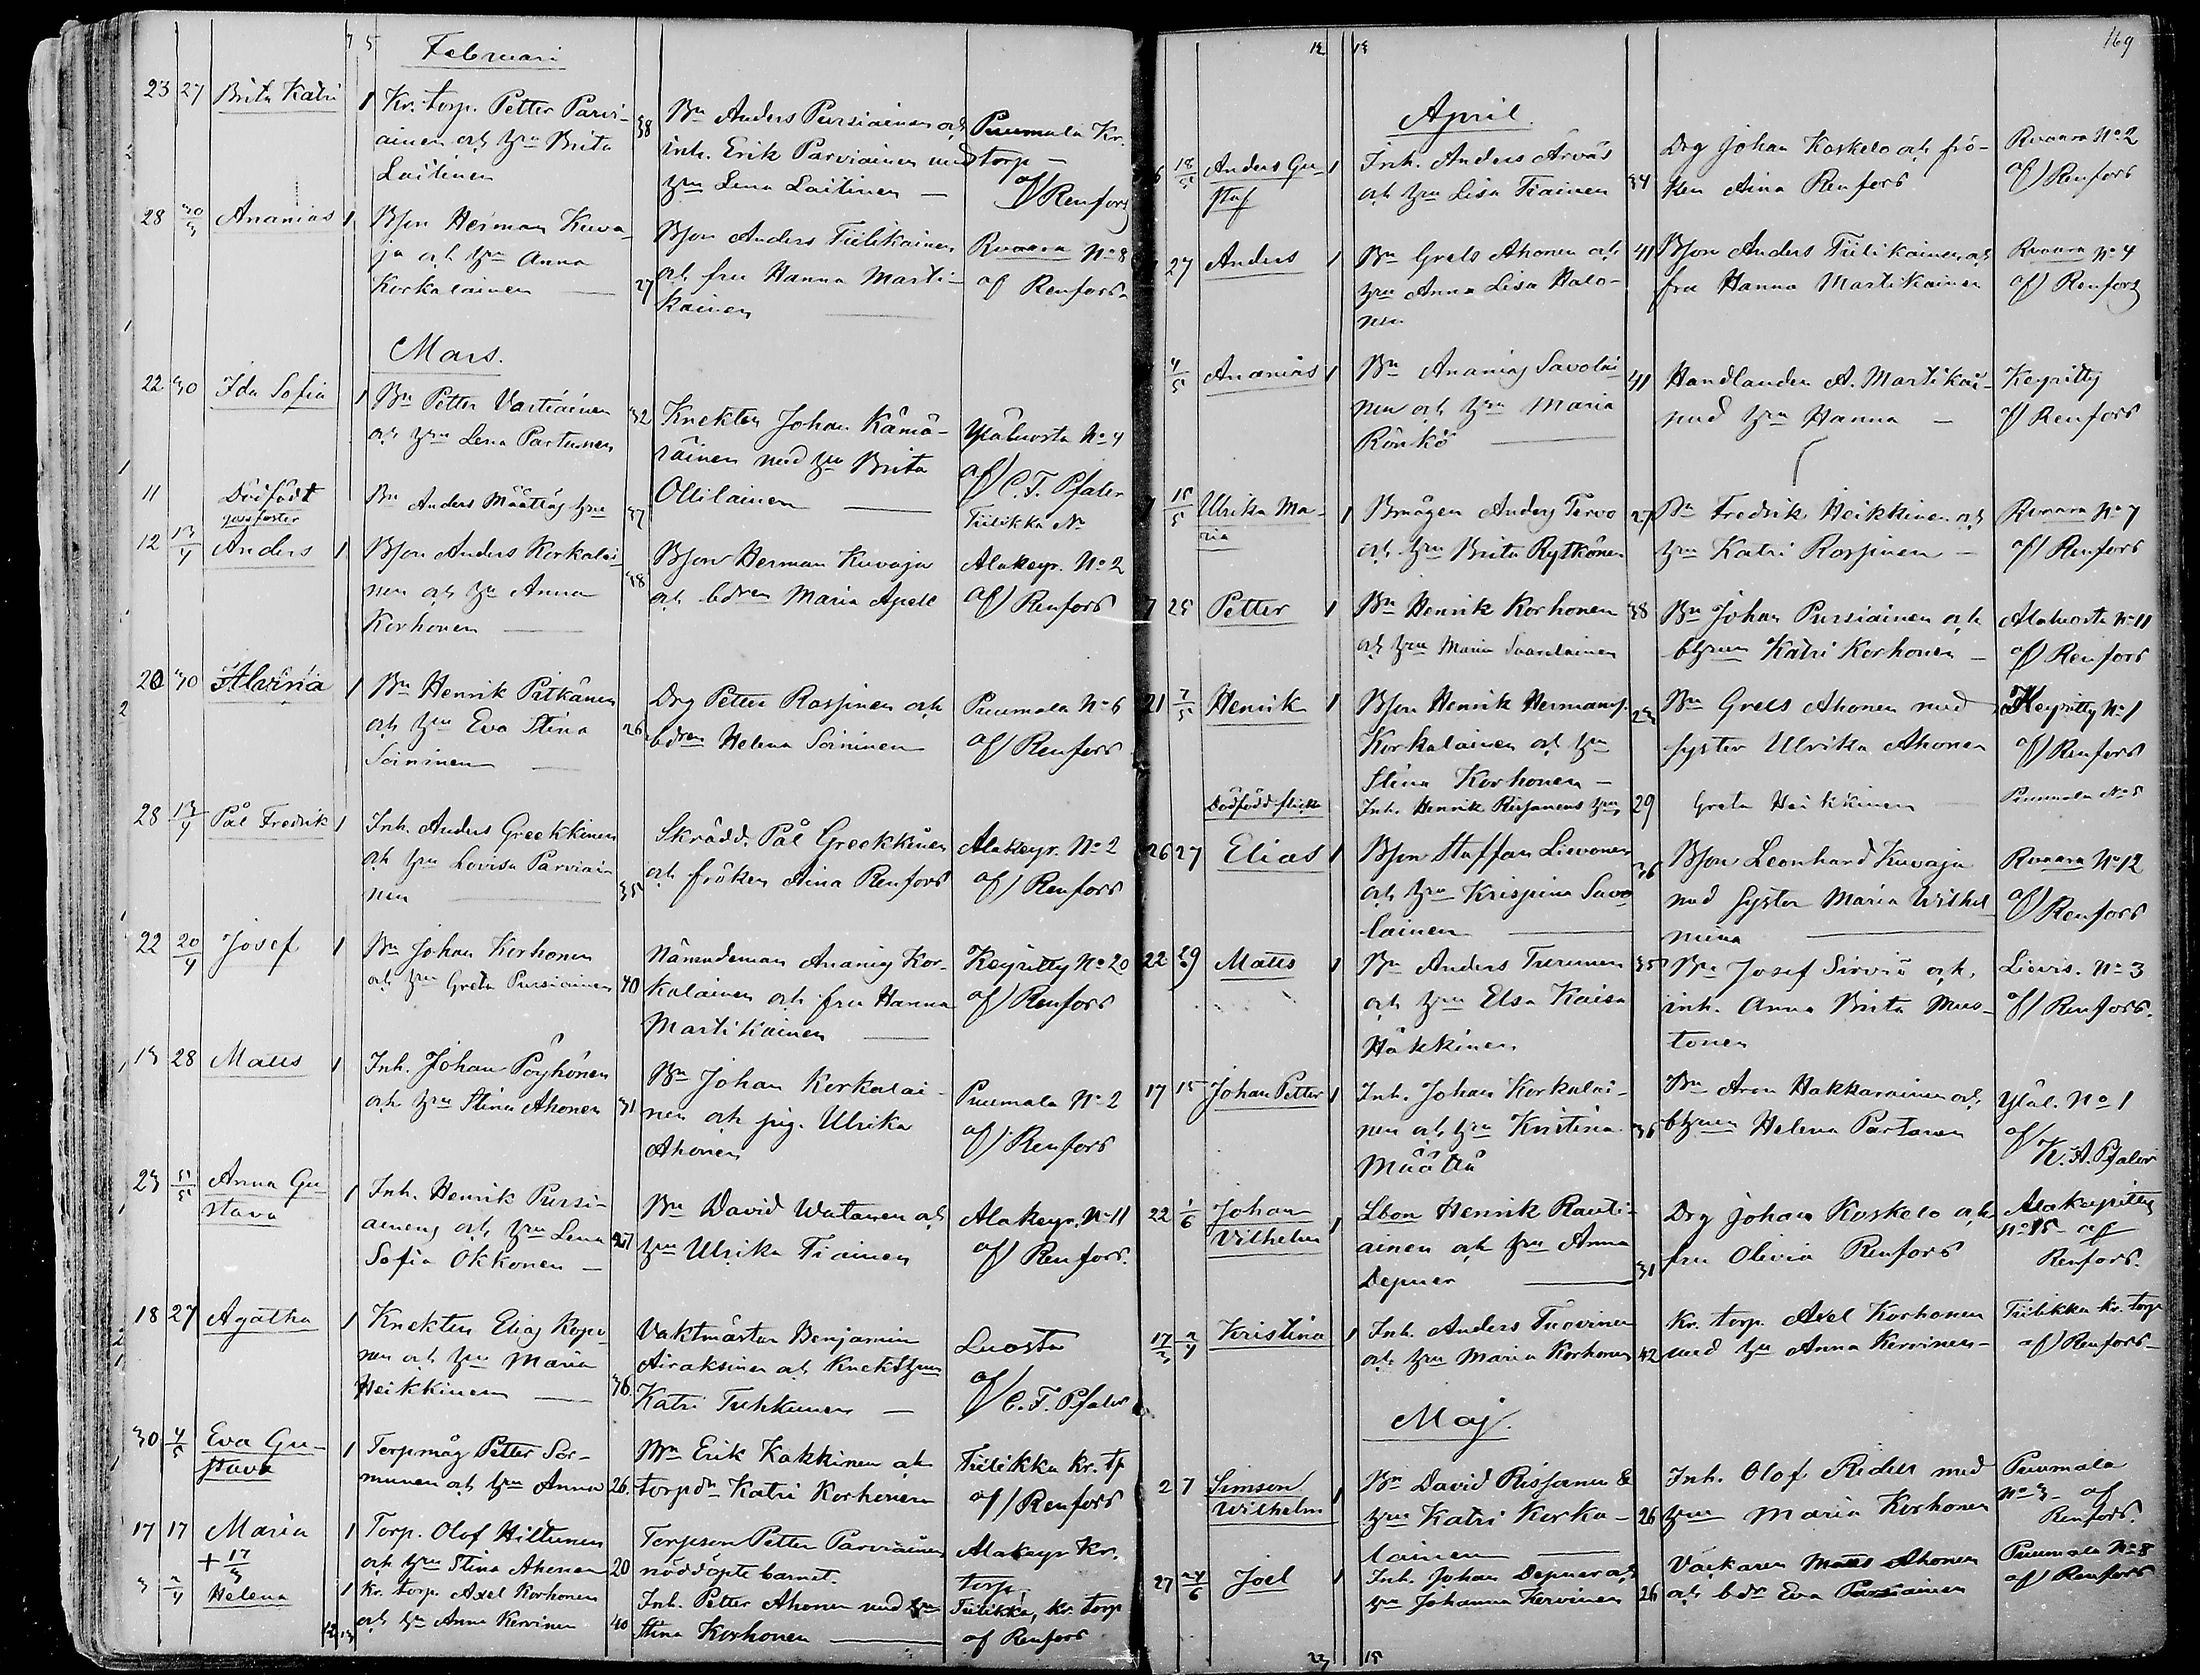 7 5
Februari
23 27 Brita Katri 1 Kr. torp. Petter Parvi-
ainen och hu Brita
Laitinen
38 Bn Anders Pursiainen och
inh. Erik Parviainen med
hu Lena Laitinen —
Puumala Kr.
torp —
af Renfors
28 30/3 Ananias 1 Bson Herman Kuva-
ja och hu Anna
Korkalainen —
27 Bson Anders Tiilikainen
och fru Hanna Marti-
kainen —
Ruuara No 8
af Renfors
Mars.
22 30 Ida Sofia 1 Bn Petter Vartiainen
och hu Lena Partanen
32 Knekten Johan Kämä-
räinen med hu Brita
Ollilainen —
Yläluosta No 4
af C. F. Pfaler
11 Dödfödt
gossfoster
Bn Anders Määttäs hu 37
Tiilikka No
12 13/4 Anders 1 Bson Anders Korkalai-
nen och hu Anna
Korhonen —
38 Bson Herman Kuvaja
och bdren Maria Apell
Alakeyr. No 2
af Renfors
20 30 Alarina 1 Bn Henrik Pitkänen
och hu Eva Stina
Soininen —
26 Drg Petter Rassinen och
bdren Helena Soininen
Puumala No 6
af Renfors
28 13/4 Pål Fredrik 1 Inh. Anders Greekkinen
och hu Lovisa Parviai-
nen —
35 Skrädd. Pål Greekkinen
och fröken Aina Renfors
Alakeyr. No 2
af Renfors
22 20/4 Josef 1 Bn Johan Korhonen
och hu Greta Pursiainen
40 Nämndeman Ananias Kor-
kalainen och fru Hanna
Martikainen —
Keyritty No 20
af Renfors
13 28 Matts 1 Inh. Johan Pöyhönen
och hu Stina Ahonen
31 Bn Johan Korkalai-
nen och pig. Ulrika
Ahonen
Puumala No 2
af Renfors
23 5/5 Anna Gu-
stava
1 Inh. Henrik Pursi-
ainens och hu Lena
Sofia Okkonen —
27 Bn David Watanen och
hu Ulrika Tiainen
Alakeyr. No 11
af Renfors.
18 27 Agatha 1 Knekten Elias Repo-
nen och hu Maria
Heikkinen —
36 Vaktmästar Benjamin
Airaksinen och Knektshun
Katri Tuhkunen —
Luosta
af C. F. Pfaler
30 4/5 Eva Gu-
stava
1 Torpmåg Petter Sor-
munen och hu Anna
26. Bn Erik Kakkinen och
torpdr Katri Korhonen
Tiilikka kr. tp
af Renfors
17 17 Maria
+ 17/3
1 Torp. Olof Hiltunen
och hu Stina Ahonen
20 Torpson Petter Parviainen
nöddöpte barnet.
Alakeyr Kr.
torp.
3 2/4 Helena 1 Kr. torp. Axel Korhonen
och hu Anna Kervinen
40 Inh. Petter Ahonen med hu
Stina Korhonen —
Tiilikka, kr. torp
af Renfors
12 13
12 13
169
April.
6 18/5 Anders Gu-
staf
1 Inh. Anders Arväs
och hu Lisa Tiainen
34 Drg Johan Koskelo och frö-
ken Aina Renfors
Ruuara No 2
af Renfors
27 Anders 1 Bn Grels Ahonen och
hu Anna Lisa Halo-
nen
41 Bson Anders Tiilikainen och
fru Hanna Martikainen
Ruuara No 4
af Renfors
4/5 Ananias 1 Bn Ananias Savolai-
nen och hu Maria
Rönkö —
41 Handlanden A. Martikai-
med hu Hanna —
Keyritty
af Renfors
15/5 Ulrika Ma-
ria
1 Bmågen Anders Tervo
och hu Brita Rytkönen
27 Bn Fredrik Heikkinen och
hu Katri Rassinen —
Ruuara No 7
af Renfors
7 25 Petter 1 Bn Henrik Korhonen
och hu Maria Saarelainen
38 Bn Johan Pursiainen och
bhun Katri Korhonen —
Alaluosta No 11
af Renfors
21 7/5 Henrik 1 Bson Henrik Hermans.
Korkalainen och hu
Stina Korhonen —
23 Bn Grels Ahonen med
syster Ulrika Ahonen
Keyritty No 1
af Renfors
Dödfödd flicka
Inh. Henrik Rissanens hu 29
Greta Heikkinen
Puumala No 5
26 27 Elias 1 Bson Staffan Lievonen
och hu Krispina Savo-
lainen —
36 Bson Leonhard Kuvaja
med syster Maria Wilhel-
mina —
Ruuara No 12
af Renfors
22 29 Matts 1 Bn Anders Turunen
och hu Elsa Kaisa
Häkkinen
35 Bn Josef Sirviö och
inh. Anna Brita Mus-
tonen
Lievis. No 3
af Renfors.
17 15 Johan Petter 1 Inh. Johan Korkalai-
nen och hu Kristina
Määttä
36 Bn Aron Hakkarainen och
bhun Helena Partanen
Yläl. No 1
af K. A. Pfaler
22 1/6 Johan
Vilhelm
1 Lbon Henrik Rauti-
ainen och hu Anna
Depner —
31 Drg Johan Koskelo och
fru Olivia Renfors
Alakeyritty
No 15 af
Renfors.
17/3 2/4 Kristina 1 Inh. Anders Tuovinen
och hu Maria Korhonen
42 Kr. torp. Axel Korhonen
med hu Anna Kervinen —
Tiilikka kr. torp
af Renfors —
Maj.
2 7 Simson
Wilhelm
1 Bn David Rissanen &
hu Katri Korka-
lainen —
26 Inh. Olof Rideli med
hun Maria Korhonen
Puumala
No 3 af
Renfors.
27 24/6 Joel 1 Inh. Johan Depner och
hu Johanna Kervinen
26 Väckaren Matts Ahonen
och bdr Eva Pursiainen
Puumala No 8
af Renfors
23 15